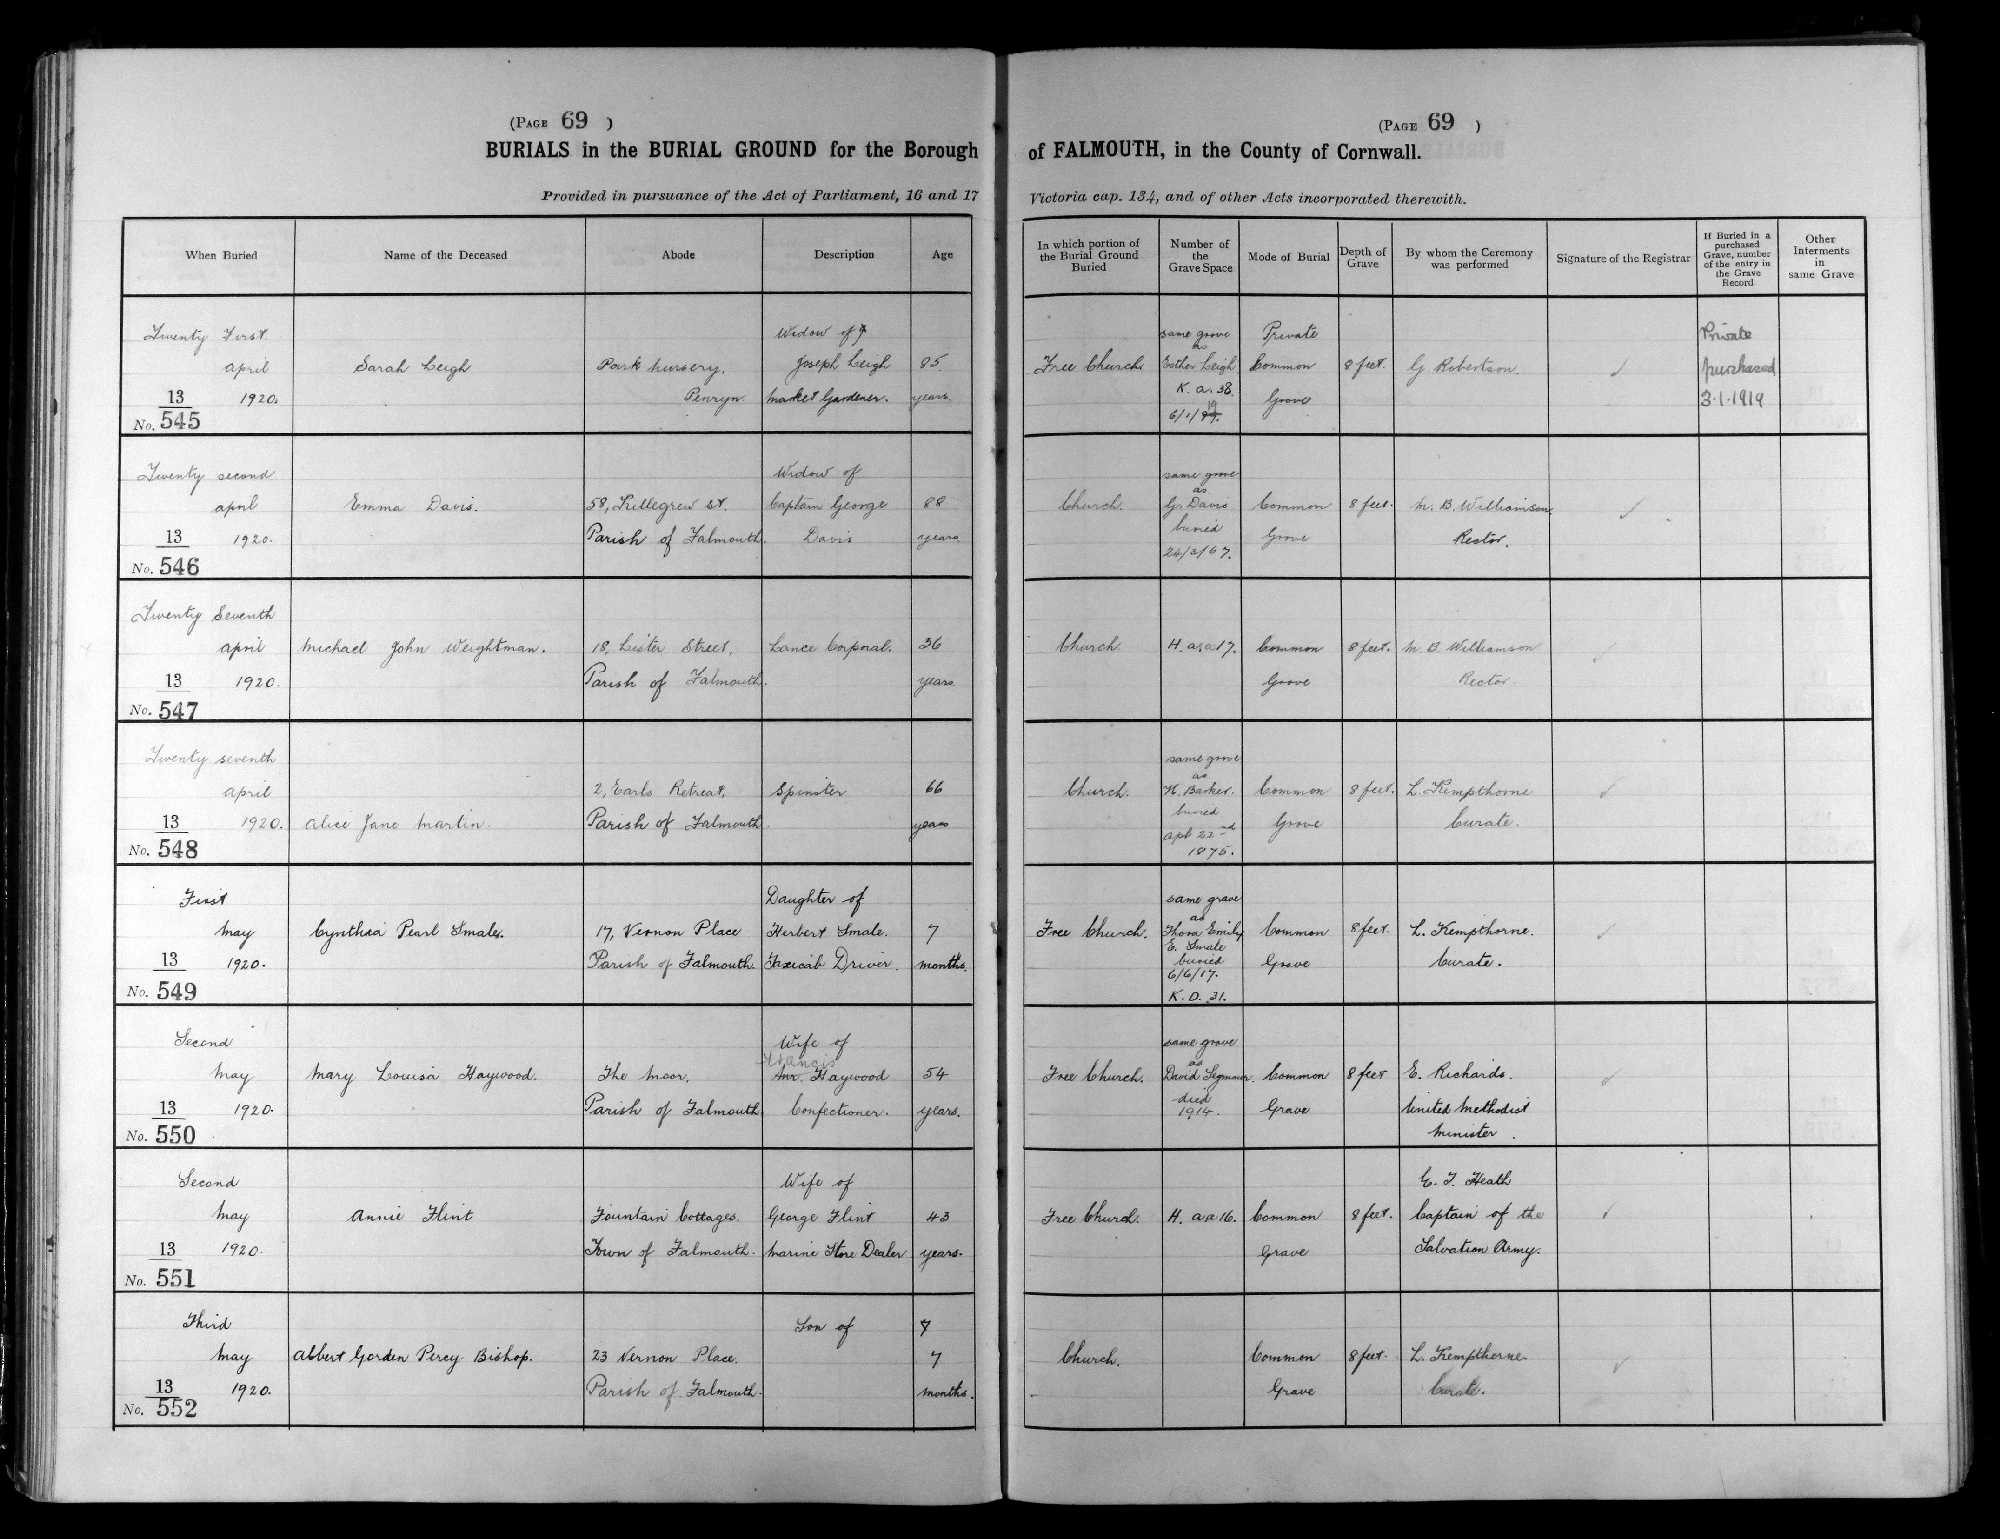 (PAGE 69 )
BURIALS in the BURIAL GROUND for the Borough
Provided in pursuance of the Act of Parliament, 16 and 17
When Buried Name of the Deceased Abode Description Age
Twenty First Widow of
april Sarah Leigh Park Nursery, Joseph Leigh 85
13 1920. Penryn Market Gardener. years
No. 545
Twenty second Widow of
april Emma Davis. 58, Killegrew St. Captain George 88
13 1920. Parish of Falmouth. Davis years
No. 546
Twenty Seventh
april Michael John Weightman. 18, Lister Street, Lance Corporal. 36
13 1920. Parish of Falmouth. years
No. 547
Twenty seventh
april 2, Earls Retreat, Spinster 66
13 1920. Alice Jane Martin. Parish of Falmouth years
No. 548
First Daughter of
May Cynthia Pearl Smale. 17, Vernon Place Herbert Smale. 7
13 1920. Parish of Falmouth Taxicab Driver. months.
No. 549
Second Wife of
Francis
May Mary Louisa Haywood. The Moor. Haywood 54
13 1920. Parish of Falmouth Confectioner. years.
No. 550
Second Wife of
May Annie Flint Fountain Cottages. George Flint 43
13 1920. Town of Falmouth. Marine Store Dealer years.
No. 551
Third Son of 7
May Albert Gorden Percy Bishop. 23 Vernon Place. 7
13 1920. Parish of Falmouth. months.
No. 552
(PAGE 69 )
of FALMOUTH, in the County of Cornwall.
Victoria cap. 134, and of other Acts incorporated therewith.
In which portion of the Burial Ground Buried Number of the Grave Space Mode of Burial Depth of Grave By whom the Ceremony was performed Signature of the Registrar If Buried in a purchased Grave, number of the entry in the Grave Record Other Interments in same Grave
same grave Private Private
as
Free Church. Esther Leigh Common 8 feet. G Robertson. purchased
K. a. 38. Grave 3.1.1919
6/1/19.
same grave
as
Church. G. Davis Common 8 feet. M. B. Williamson
buried Grave Rector.
24/3/67.
Church. H. a.a 17. Common 8 feet. M. B. Williamson
Grave Rector.
same grave
as
Church. H. Barker. Common 8 feet. L. Kempthorne
buried Grave Curate.
apl 22nd
1875.
same grave
as
Free Church. Thora Emily Common 8 feet. L. Kempthorne.
E. Smale
buried Grave Curate.
6/6/17.
K. D. 31.
same grave
as
Free Church. David Common 8 feet E. Richards.
died
1914. Grave United Methodist
Minister.
E. T. Heath
Free Church. H. a.a 16. Common 8 feet. Captain of the
Grave Salvation Army.
Church. Common 8 feet. L. Kempthorne
Grave Curate.